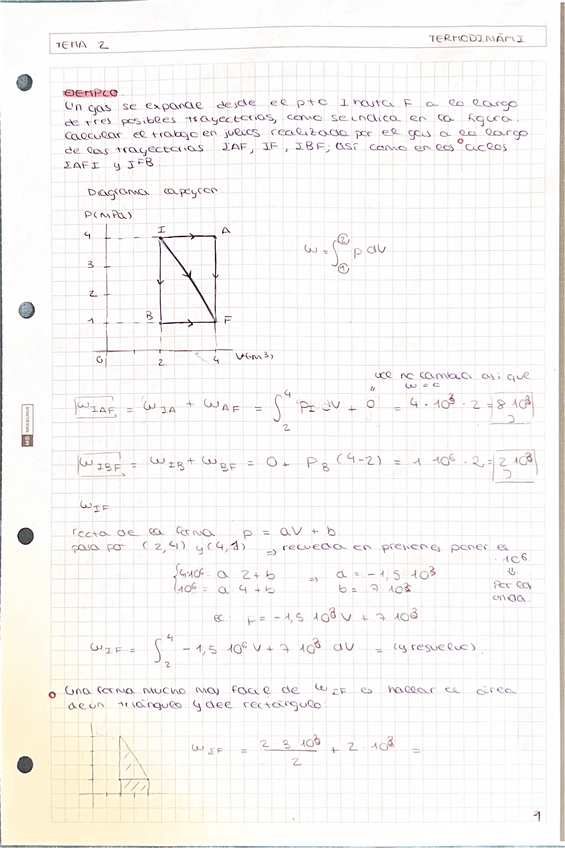 TEMA 2
TERMODINÀMI
EJEMPLO.
Un gas se expande desde el pto I hasta F a lo largo
de tres posibles trayectorias, como se indica en la figura.
Calcular el trabajo en julios realizado por el gas a lo largo
de las trayectorias IAF, IF, IBF; así como en los ciclos
IAFI y IFB
Diagrama capeyron.
P(MPa)
4
3
2
1
0
2
4
I
A
B
F
W = ∫ p dV
uce no cambia asi que
W = 0
W_IAF = W_IA + W_AF = ∫₂⁴ P_I dV + 0 = 4·10³·2 = 8 10³ J
W_IBF = W_IB + W_BF = 0 + P_B (4-2) = 1 10⁶·2 = 2 10³ J
W_IF
recta de la forma p = aV + b
pasa por (2,4) y (4,1) ⇒ recuerda en presiones poner el
·10⁶
por las
unida.
4·10⁶ = a 2 + b ⇒ a = -1,5 10³
10⁶ = a 4 + b b = 7 10³
p = -1,5 10³ V + 7 10³
W_IF = ∫₂⁴ -1,5 10⁶ V + 7 10³ dV = (y resuelve).
Una forma mucho mas facil de W_IF es hallar el área
de un triángulo y del rectángulo.
W_IF = 2 3 10³ / 2 + 2·10³ =
1